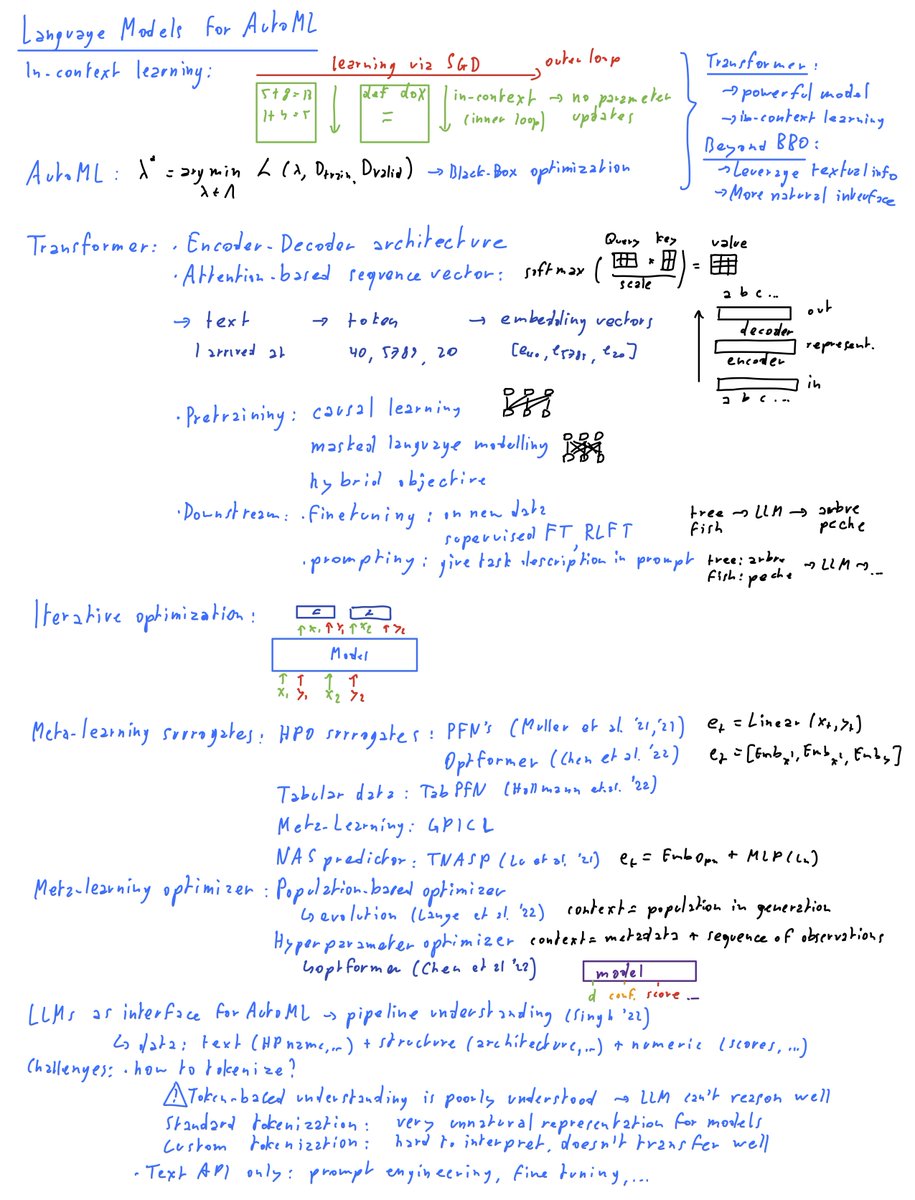 Language Models for AutoML
In-context learning:
learning via SGD
outer loop
5+8=13
1+4=5
def dox
=
in-context → no parameter
(inner loop) updates
Transformer:
→ powerful model
→ in-context learning
Beyond BBO:
→ Leverage textual info
→ More natural interface
AutoML: λ* = argmin L (λ, Dtrain, Dvalid) → Black-Box optimization
λ ∈ Λ
Transformer: · Encoder-Decoder architecture
· Attention-based sequence vector: softmax ( Query * key ) = value
scale
→ text → token → embedding vectors
I arrived at 40, 5789, 20 [e40, e5789, e20]
a b c ...
out
decoder
represent.
encoder
in
a b c ...
· Pretraining: causal learning
masked language modelling
hybrid objective
· Downstream: · finetuning: on new data
supervised FT, RLFT
tree → LLM → arbre
fish peche
· prompting: give task description in prompt
tree: arbre → LLM → ...
fish: peche
Iterative optimization:
↑x1 ↑y1 ↑x2 ↑y2
Model
↑ ↑ ↑ ↑
x1 y1 x2 y2
Meta-learning surrogates: HPO surrogates: PFN's (Muller et al. '21,'21) et = Linear (xt, yt)
Optformer (Chen et al. '22) et = [Embx1, Embx2, Emby]
Tabular data: TabPFN (Hollmann et.al. '22)
Meta-Learning: GPICL
NAS predictor: TNASP (Lu et al. '21) et = EmbOpn + MLP(Ln)
Meta-learning optimizer: Population-based optimizer
↳ evolution (Lange et al. '22) context = population in generation
Hyperparameter optimizer context = metadata + sequence of observations
↳ optformer (Chen et al '22)
model
d conf. score ...
LLMs as interface for AutoML → pipeline understanding (Singh '22)
↳ data: text (HP name,...) + structure (architecture,...) + numeric (scores, ...)
Challenges: · how to tokenize?
⚠ Token-based understanding is poorly understood → LLM can't reason well
Standard tokenization: very unnatural representation for models
Custom tokenization: hard to interpret, doesn't transfer well
· Text API only: prompt engineering, fine tuning, ...